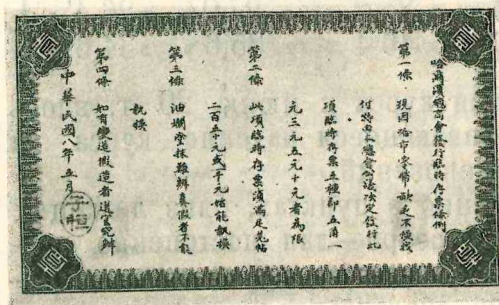 哈爾濱總商會發行臨時存票條例
第一條 現因哈市家幣缺乏不便找
付特由本總會公議決定發行此
項臨時存票五種即五角一
元三元五元十元者為限
第二條 此項臨時存票須滿足羌帖
二百五十元或千元始能執換
第三條 油爛塗抹難辨真假者不能
執換
第四條 如有變造假造者送官究辦
中華民國八年五月
壹
壹
壹
壹